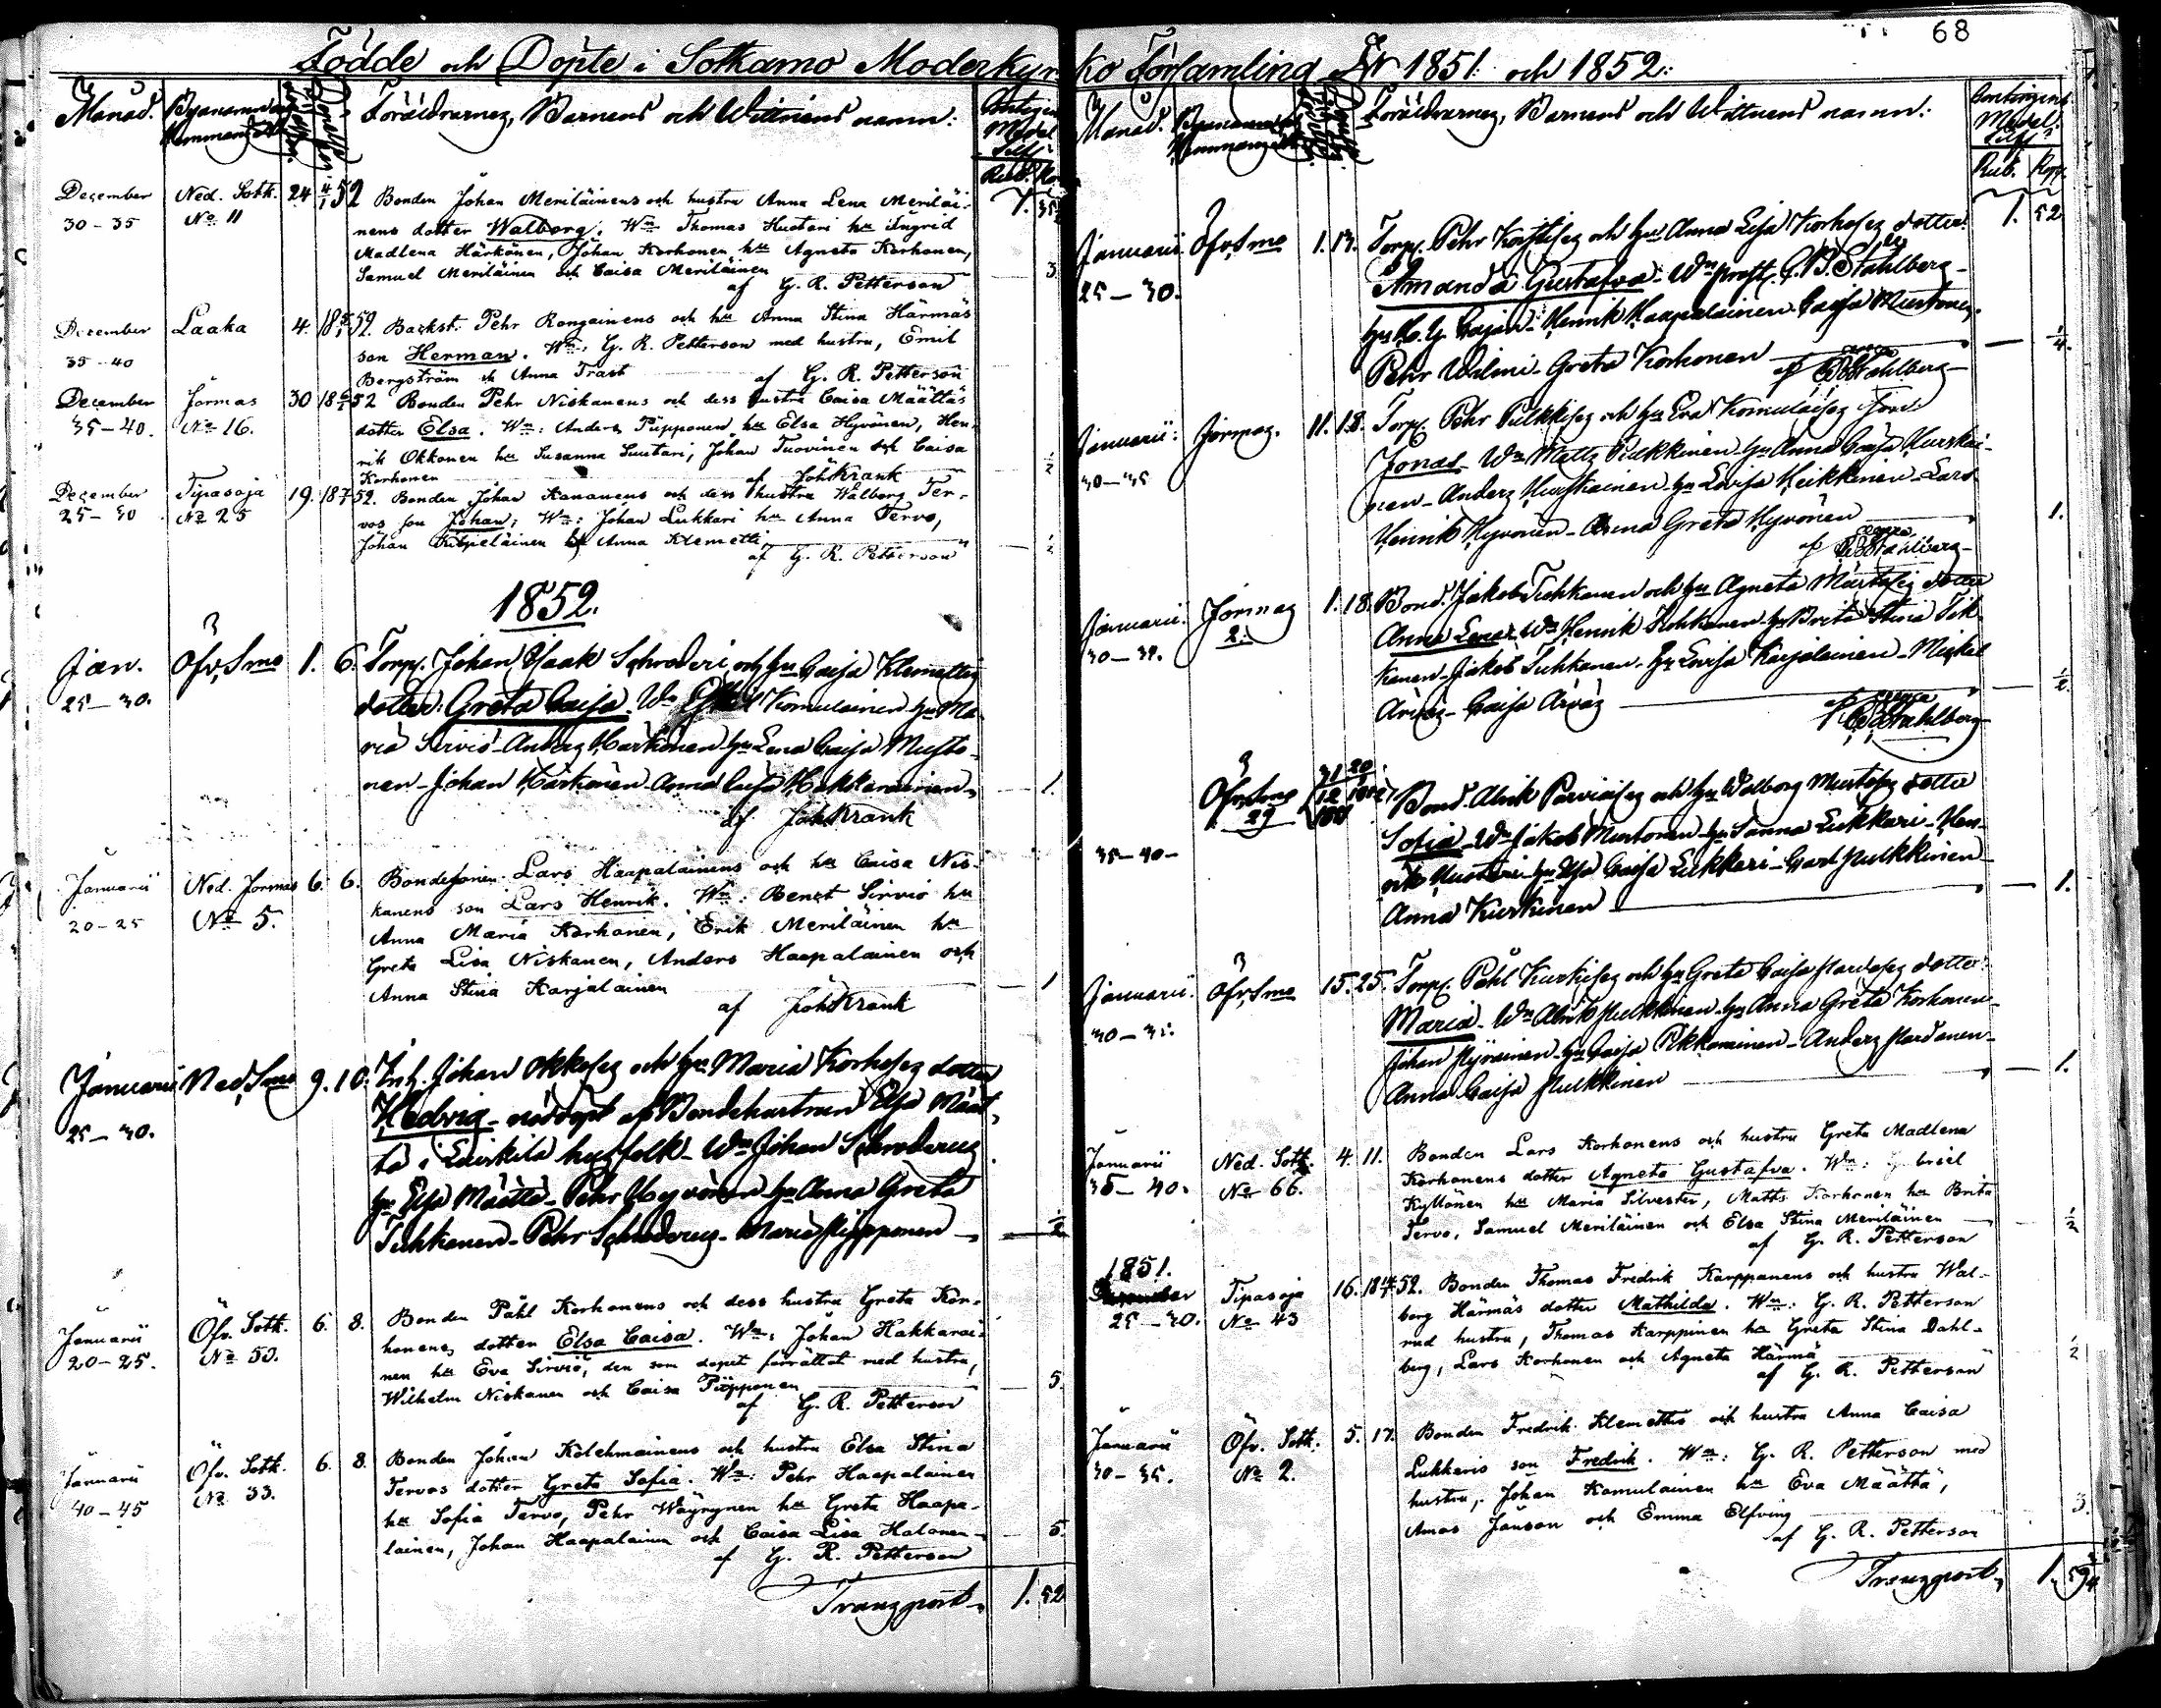 68
Födde och Döpte i Sotkamo Moderkyrko Församling År 1851 och 1852:
Månad. Byanamn Hemmans No
Föräldrarnes, Barnens och Wittnens namn:
Rub. Ko
December Ned. Sotk. 24 4/1 52 Bonden Johan Meriläinens och hustru Anna Lena Meriläi- 7. 35
30 - 35 No 11 nens dotter Walborg. Wn Thomas Huotari hu Ingrid
Madlena Härkönen, Johan Korhonen hu Agneta Korhonen,
Samuel Meriläinen och Caisa Meriläinen 3
af G. R. Petterson
December Laaka 4. 18 5/1 52. Backst. Pehr Rongainens och hu Anna Stina Härmäs
35 - 40 son Herman. Wn: G. R. Petterson med hustru, Emil
Bergström och Anna Trast af G. R. Petterson
December Jormas 30 18 6/1 52 Bonden Pehr Niskanens och dess hustru Caisa Määttäs
35-40. No 16. dotter Elsa. Wn: Anders Piipponen hu Elsa Hyvönen, Hen-
rik Okkonen hu Susanna Suutari, Johan Tuovinen och Caisa
Korhonen af Joh Krank 1/2
December Tipasoja 19. 18 7/1 52. Bonden Johan Kananens och dess hustru Walborg Ter-
25 - 30 No 25 vos son Johan; Wn: Johan Lukkari hu Anna Tervo,
Johan Kilpeläinen och Anna Klemetti 1/2
af G. R. Petterson
1852.
Jan. Öfv. Smo 1. 6. Torp. Johan Isaak Schroderi och hu Caisa Klemettis
25 - 30. dotter Greta Caisa. Wn Komulainen hu Ma-
ria Sirviö - Anders Härkönen hu Lena Caisa Musto-
nen - Johan Härkönen Anna Caisa Hakkarainen 1.
af Joh Krank
Januarii Ned. Jormas 6. 6. Bondesonen Lars Haapalainens och hu Caisa Nis-
20 - 25 No 5. kanens son Lars Henrik. Wn: Benct Sirviö hu
Anna Maria Korhonen, Erik Meriläinen hu
Greta Lisa Niskanen, Anders Haapalainen och
Anna Stina Karjalainen 1
af Joh Krank
Januarii Ned. Smo 9. 10. Inh. Johan Okkoses och hu Maria Korhoses dotter
25 - 30. Hedvig - nöddöpt af Bondehustrun Elsa Määt-
tä i husfolk - Wn Johan Schroderus
hu Elsa Määttä - Pehr Hyvönen hu Anna Greta
Tuhkanen - Pehr Schroderus - Maria Piipponen 1/2
Januarii Öfv. Sotk. 6. 8. Bonden Påhl Korhonens och dess hustru Greta Kor-
20 - 25. No 53. honens dotter Elsa Caisa. Wn: Johan Hakkarai-
nen hu Eva Sirviö, den som dopet förrättat med hustru,
Wilhelm Niskanen och Caisa Piipponen 5.
af G. R. Petterson
Januarii Öfv. Sotk. 6. 8. Bonden Johan Kolehmainens och hustru Elsa Stina
40 - 45 No 33. Tervos dotter Greta Sofia. Wn: Pehr Haapalainen
hu Sofia Tervo, Pehr Wäyrynen hu Greta Haapa-
lainen, Johan Haapalainen och Caisa Lisa Halonen 5.
af G. R. Petterson
Transport 1. 52
Månad. Byanamn Hemmans No
Föräldrarnes, Barnens och Wittnens namn:
Contingent Medel Silf
Rub. Kop.
Januarii Öfv. Smo 1. 17. Torp. Pehr och hu Anna Lisa Korhoses dotter 1. 52
25 - 30. Amanda Gustafva - Wn prost. C. B. Ståhlberg
Cajan - Henrik Haapalainen - Caisa Mustonen
Pehr Walmi - Greta Korhonen 1/4
af Ståhlberg
Januarii: Jormas. 11. 18. Torp. Pehr Pulkkises och hu Eva Komulaises son:
30 - 35 Jonas - Wn Matts Pulkkinen hu Anna Caisa Hurskai-
nen - Anders Hurskainen hu Lovisa Heikkinen - Lars
Henrik Hyvönen - Anna Greta Hyvönen 1.
af Ståhlberg
Januarii: Jormas 1. 18. Bond. Jakob Tuhkanen och hu Agneta dotter
30 - 32. 2. Anna Lena - Wn Henrik hu Brita Stina Tik-
kanen - Jakob Tuhkanen hu Lovisa Karjalainen - Mickel
Arvas - Caisa Arvas 1/2
af Ståhlberg
Öfv. Smo 29 31/12 1851 20/1 1852 Bond. Alrik Parviaises och hu Walborg Mustoses dotter
35 - 40 - Sofia - Wn Jakob Mustonen hu Sanna Lukkari - Hen-
rik Huotari hu Elsa Caisa Lukkari - Carl Pulkkinen
Anna Kurkinen 1.
Januarii. Öfv. Smo 15. 25. Torp. Påhl Kurkises och hu Greta Caisa Pardoses dotter:
30 - 35. Maria - Wn Alrik Pulkkinen hu Anna Greta Korhonen
Johan hu Caisa Pikkarainen - Anders Pardanen
Anna Caisa Pulkkinen 1.
Januarii Ned. Sotk. 4. 11. Bonden Lars Korhonens och hustru Greta Madlena
35 - 40. No 66. Korhonens dotter Agneta Gustafva. Wn: briel
Kyllönen hu Maria Silvester, Matts Korhonen hu Brita
Tervo, Samuel Meriläinen och Elsa Stina Meriläinen 1/2
af G. R. Petterson
1851.
December Tipasoja 16. 18 14/1 52. Bonden Thomas Fredrik Karppanens och hustru Wal-
25 - 30. No 43 borg Härmäs dotter Mathilda. Wn: G. R. Petterson
med hustru, Thomas Karppinen hu Greta Stina Dahl-
berg, Lars Korhonen och Agneta Härmä 1/2
af G. R. Petterson
Januarii Öfv. Sotk. 5. 17. Bonden Fredrik Klemettis och hustru Anna Caisa
30 - 35. No 2. Lukkaris son Fredrik. Wn: G. R. Petterson med
hustru, Johan Komulainen hu Eva Määttä,
Amos Janson och Emma Elfving 3.
af G. R. Petterson
Transport 1. 59 3/4